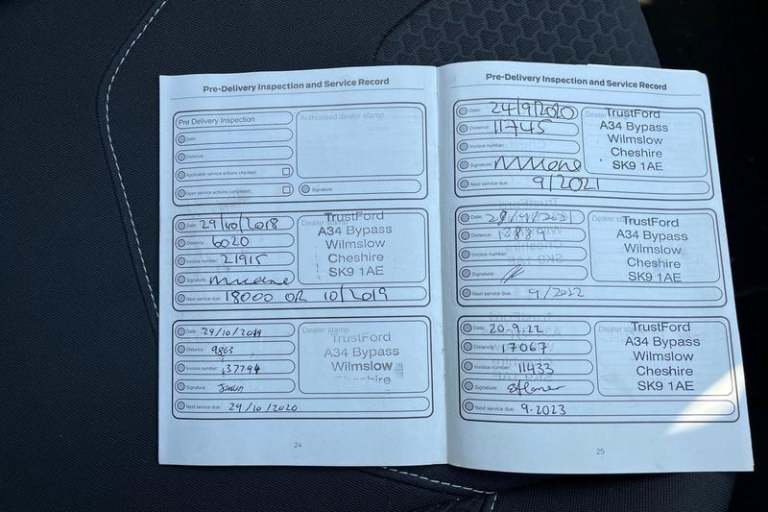 Pre-Delivery Inspection and Service Record
Pre Delivery Inspection
Authorised dealer stamp
Date:
Distance:
Applicable service actions checked:
Open service actions completed:
Signature:
Date: 29/10/2018
Distance: 6020
Invoice number: 21915
Signature:
Next service due: 18000 OR 10/2019
TrustFord
A34 Bypass
Wilmslow
Cheshire
SK9 1AE
Date: 29/10/2019
Distance: 9863
Invoice number: 37794
Signature:
Next service due: 29/10/2020
Dealer stamp
TrustFord
A34 Bypass
Wilmslow
Cheshire
24
Pre-Delivery Inspection and Service Record
Date: 24/9/2020
Distance: 11745
Invoice number:
Signature:
Next service due: 9/2021
TrustFord
A34 Bypass
Wilmslow
Cheshire
SK9 1AE
Date: 28/9/2021
Distance:
Invoice number:
Signature:
Next service due: 9/2022
TrustFord
A34 Bypass
Wilmslow
Cheshire
SK9 1AE
Date: 20.9.22
Distance: 17067
Invoice number: 11433
Signature:
Next service due: 9.2023
TrustFord
A34 Bypass
Wilmslow
Cheshire
SK9 1AE
25